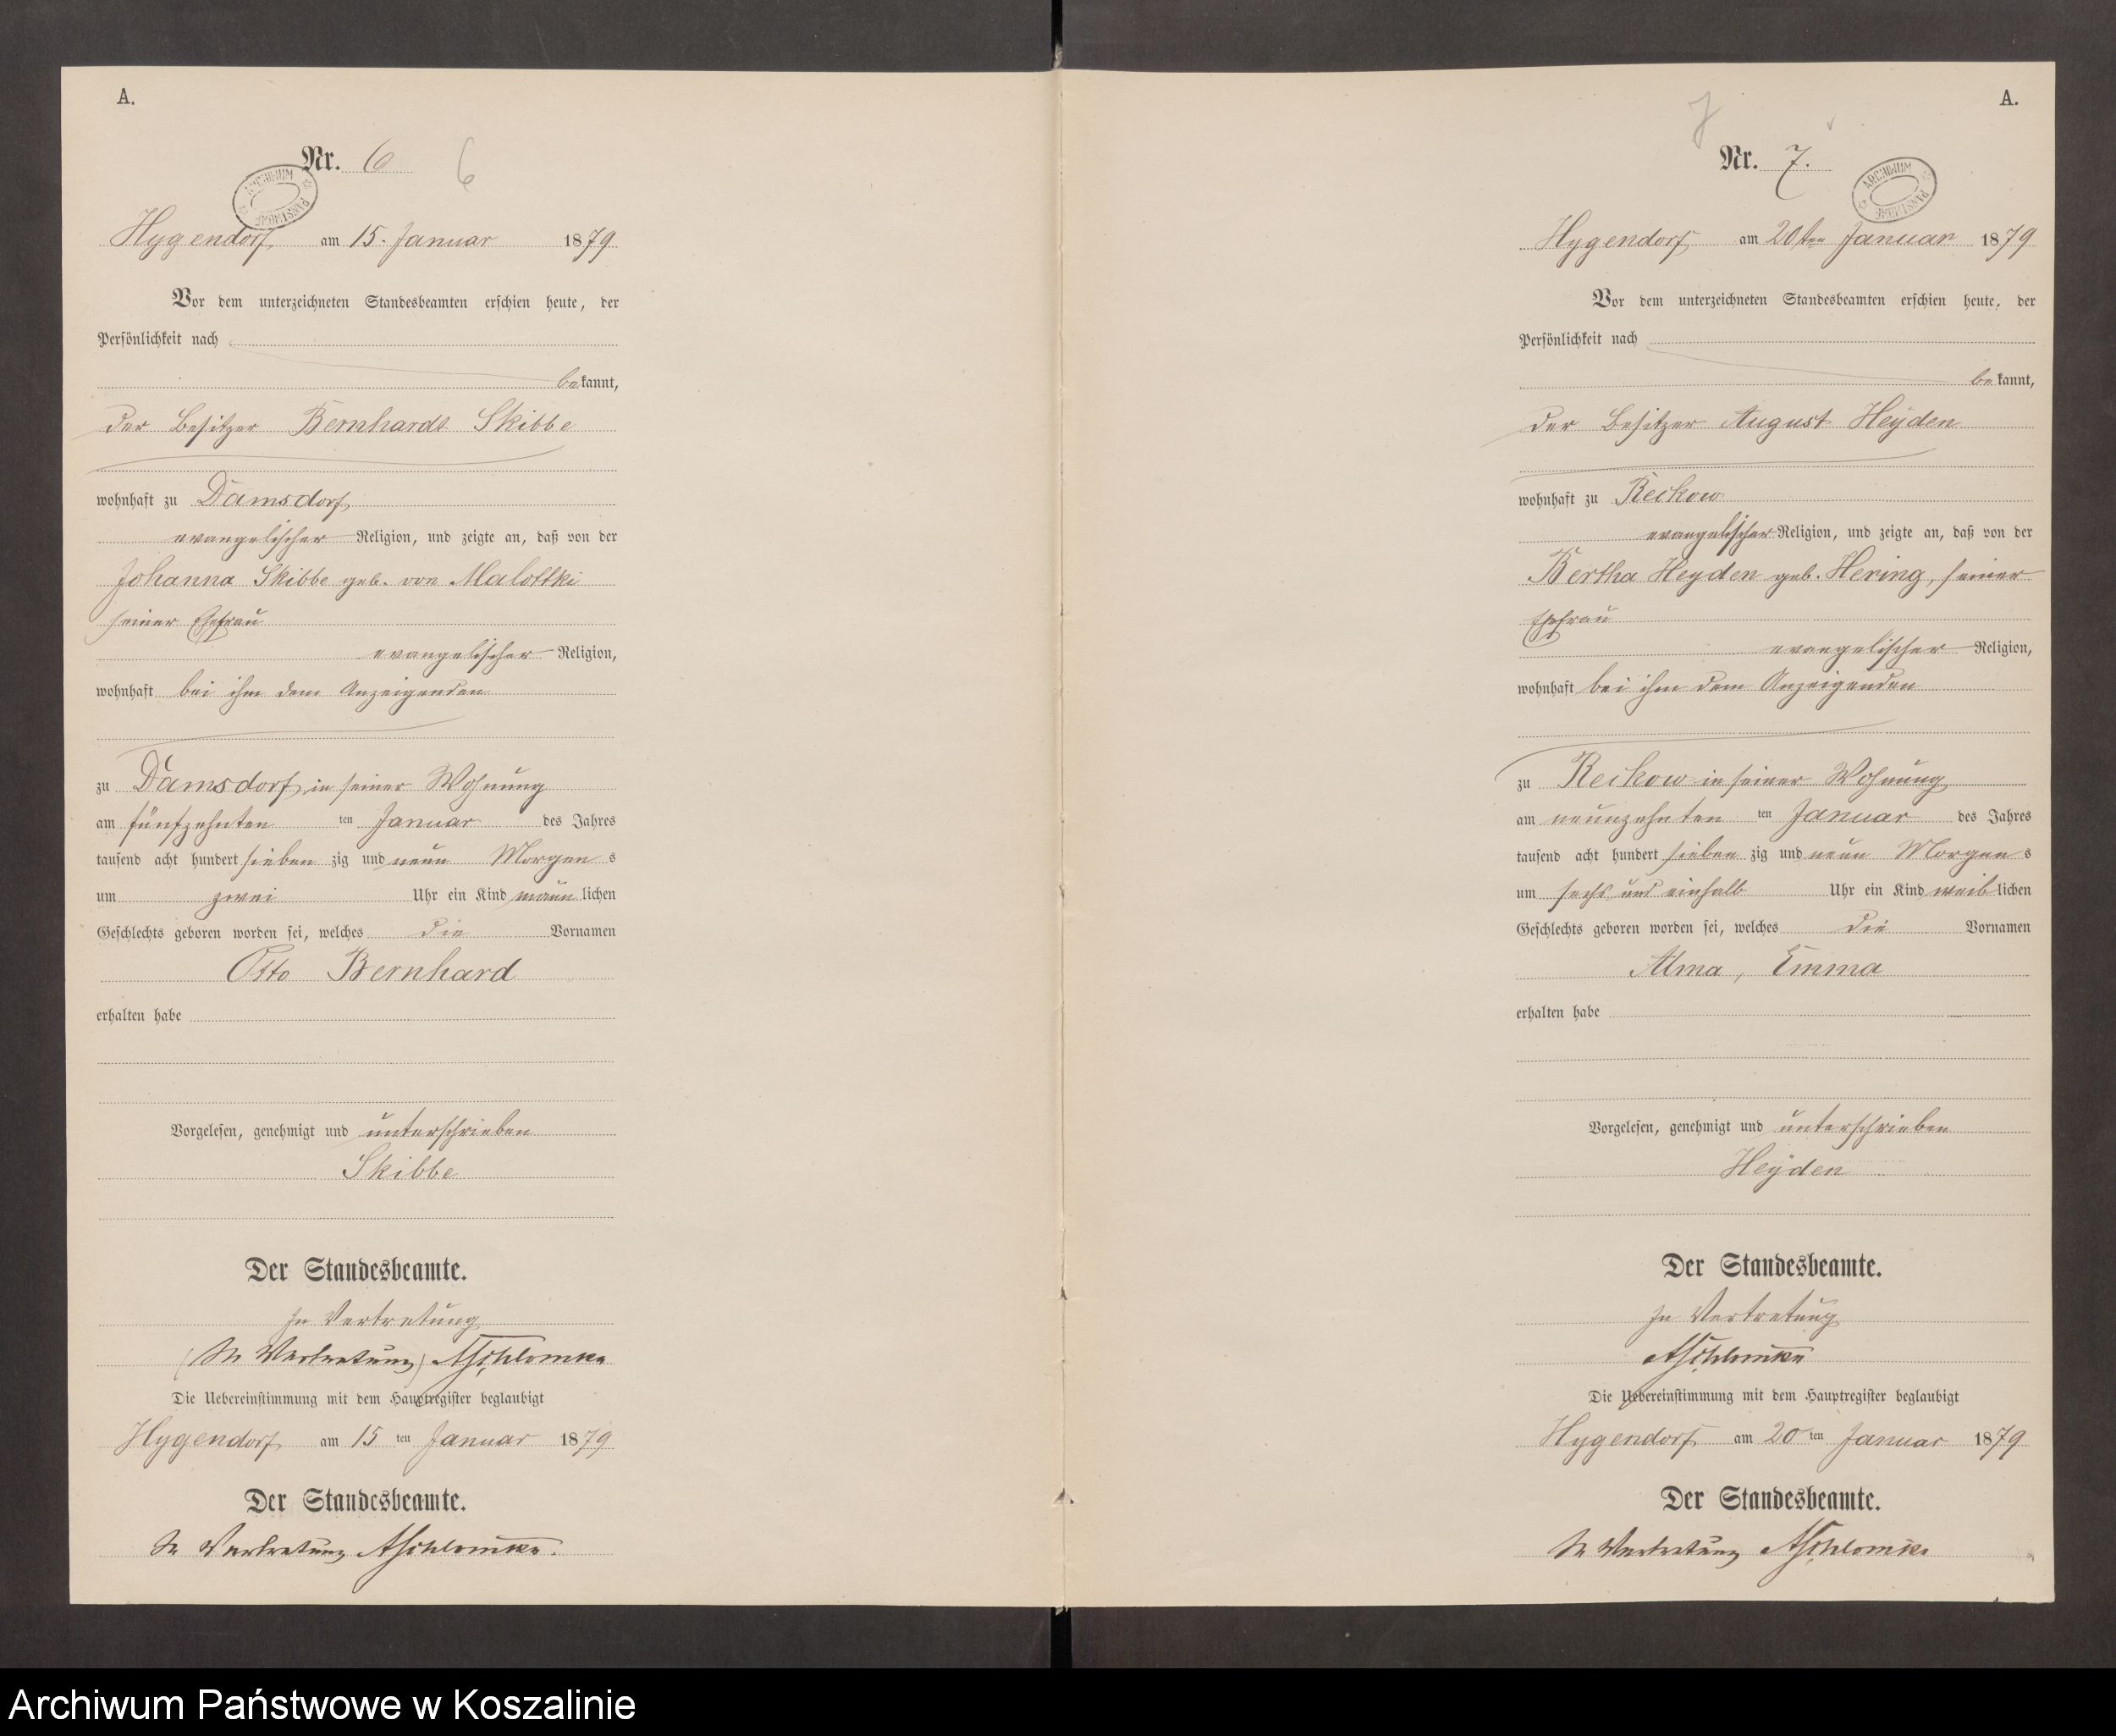 A.
Nr. 6 6
ARCHIWUM PAŃSTWOWE
Hygendorf am 15. Januar 1879
Vor dem unterzeichneten Standesbeamten erschien heute, der
Persönlichkeit nach
bekannt,
der Besitzer Bernhardt Skibbe
wohnhaft zu Damsdorf
evangelischer Religion, und zeigte an, daß von der
Johanna Skibbe geb. von Malottki
seiner Ehefrau
evangelischer Religion,
wohnhaft bei ihm dem Anzeigenden
zu Damsdorf in seiner Wohnung
am fünfzehnten ten Januar des Jahres
tausend acht hundert sieben zig und neun Morgen s
um zwei Uhr ein Kind männ lichen
Geschlechts geboren worden sei, welches die Vornamen
Otto Bernhard
erhalten habe
Vorgelesen, genehmigt und unterschrieben
Skibbe
Der Standesbeamte.
In Vertretung
(In Vertretung)
Die Uebereinstimmung mit dem Hauptregister beglaubigt
Hygendorf am 15 ten Januar 1879
Der Standesbeamte.
In Vertretung
A.
7
Nr. 7.
ARCHIWUM PAŃSTWOWE
Hygendorf am 20ten Januar 1879
Vor dem unterzeichneten Standesbeamten erschien heute, der
Persönlichkeit nach
bekannt,
der Besitzer August Heyden
wohnhaft zu Reckow
evangelischer Religion, und zeigte an, daß von der
Bertha Heyden geb. Hering, seiner
Ehefrau
evangelischer Religion,
wohnhaft bei ihm dem Anzeigenden
zu Reckow in seiner Wohnung
am neunzehnten ten Januar des Jahres
tausend acht hundert sieben zig und neun Morgen s
um sechs und einhalb Uhr ein Kind weib lichen
Geschlechts geboren worden sei, welches die Vornamen
Alma, Emma
erhalten habe
Vorgelesen, genehmigt und unterschrieben
Heyden
Der Standesbeamte.
In Vertretung
Die Uebereinstimmung mit dem Hauptregister beglaubigt
Hygendorf am 20 ten Januar 1879
Der Standesbeamte.
In Vertretung
Archiwum Państwowe w Koszalinie